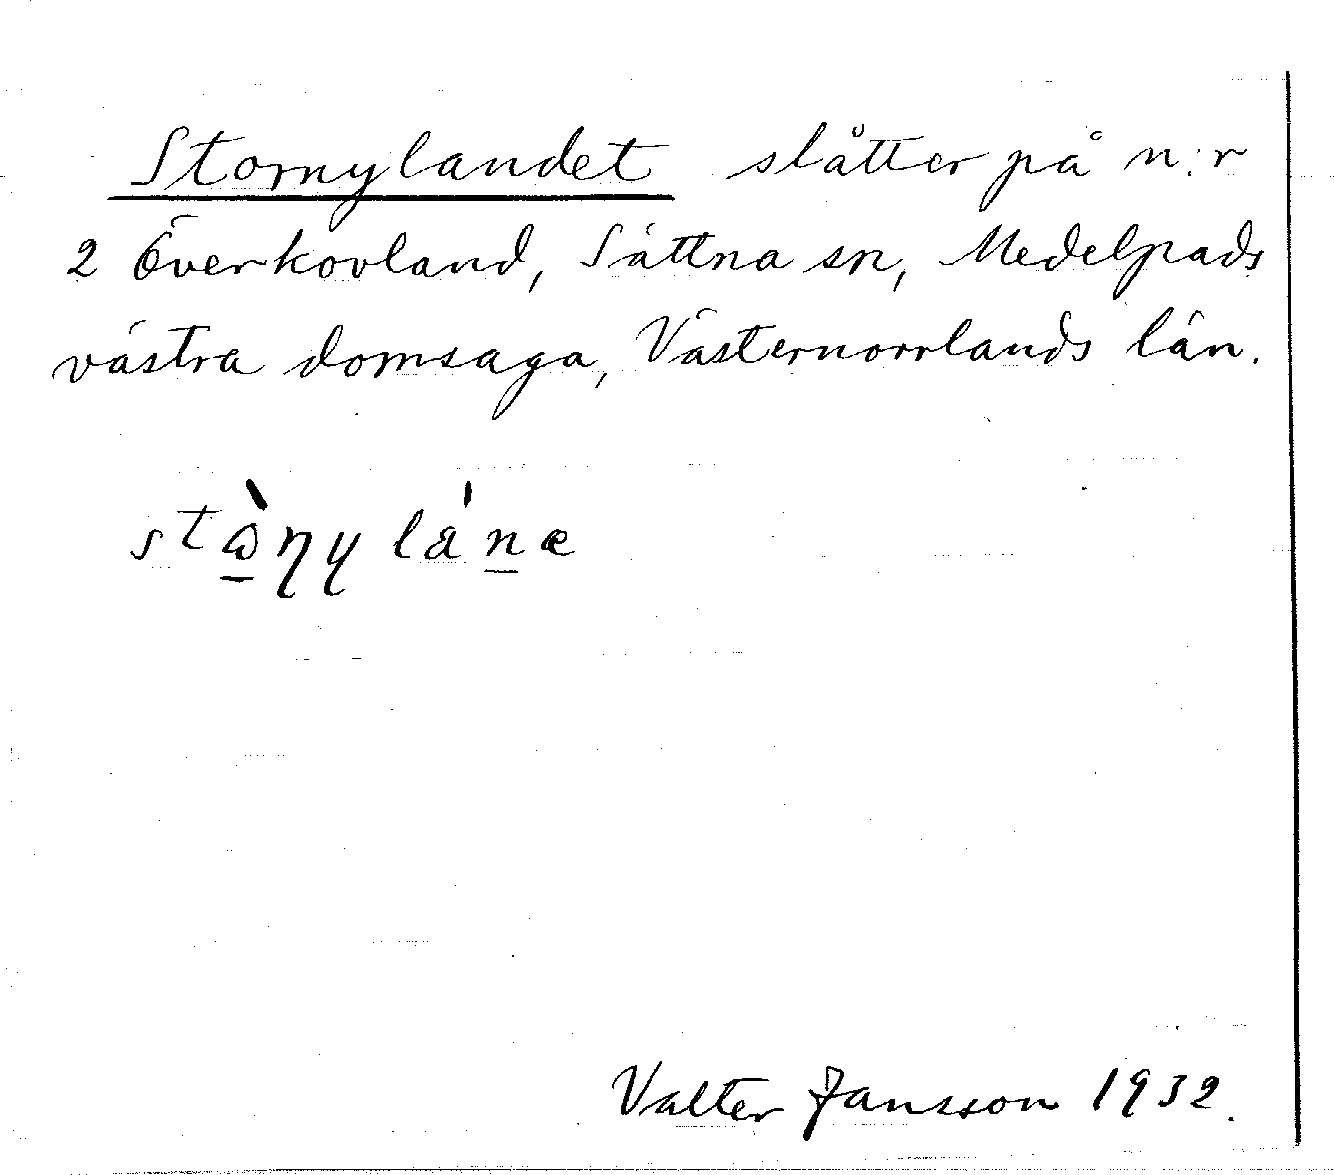 Stornylandet slåtter på n:r
2 Överkovland, Sättna sn, Medelpads
västra domsaga, Västernorrlands län.
Valter Jansson 1932.